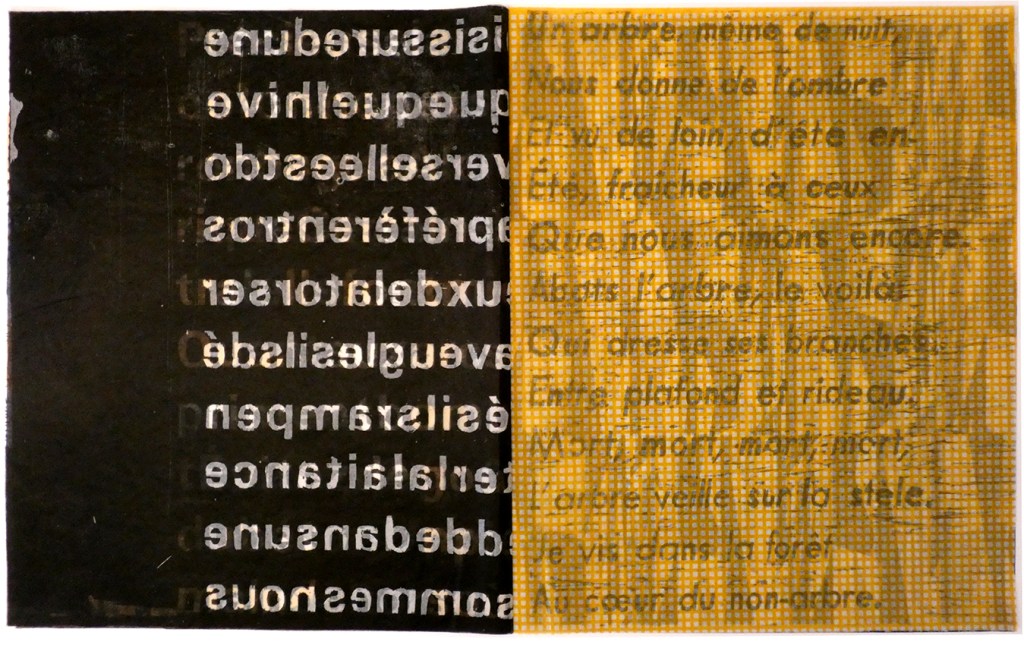 isissuredune
quequelhive
verselleestdo
apréfèrentros
euxdelatorser
aveuglesilsdé
ésilsrampen
terlalaitance
ddedansune
sommesnous
Un arbre, même de nuit,
Nous donne de l'ombre
Et vu de loin, d'été en
Été, fraîcheur à ceux
Que nous aimons encore.
Abats l'arbre, le voilà
Qui dresse ses branches
Entre plafond et rideau.
Mort, mort, mort, mort,
L'arbre veille sur la stèle.
Je vis dans la forêt
Au cœur du non-arbre.